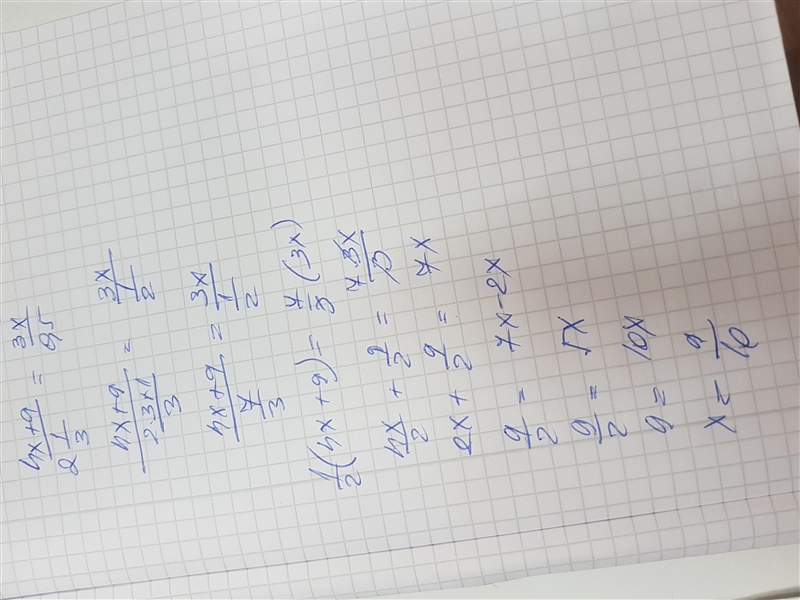 4x+9 / 2 1/3 = 3x / 0,5
4x+9 / (2·3+1 / 3) = 3x / (1/2)
4x+9 / (7/3) = 3x / (1/2)
1/2 (4x+9) = 7/3 (3x)
4x/2 + 9/2 = 7·3x/3
2x + 9/2 = 7x
9/2 = 7x-2x
9/2 = 5x
9 = 10x
x = 9/10